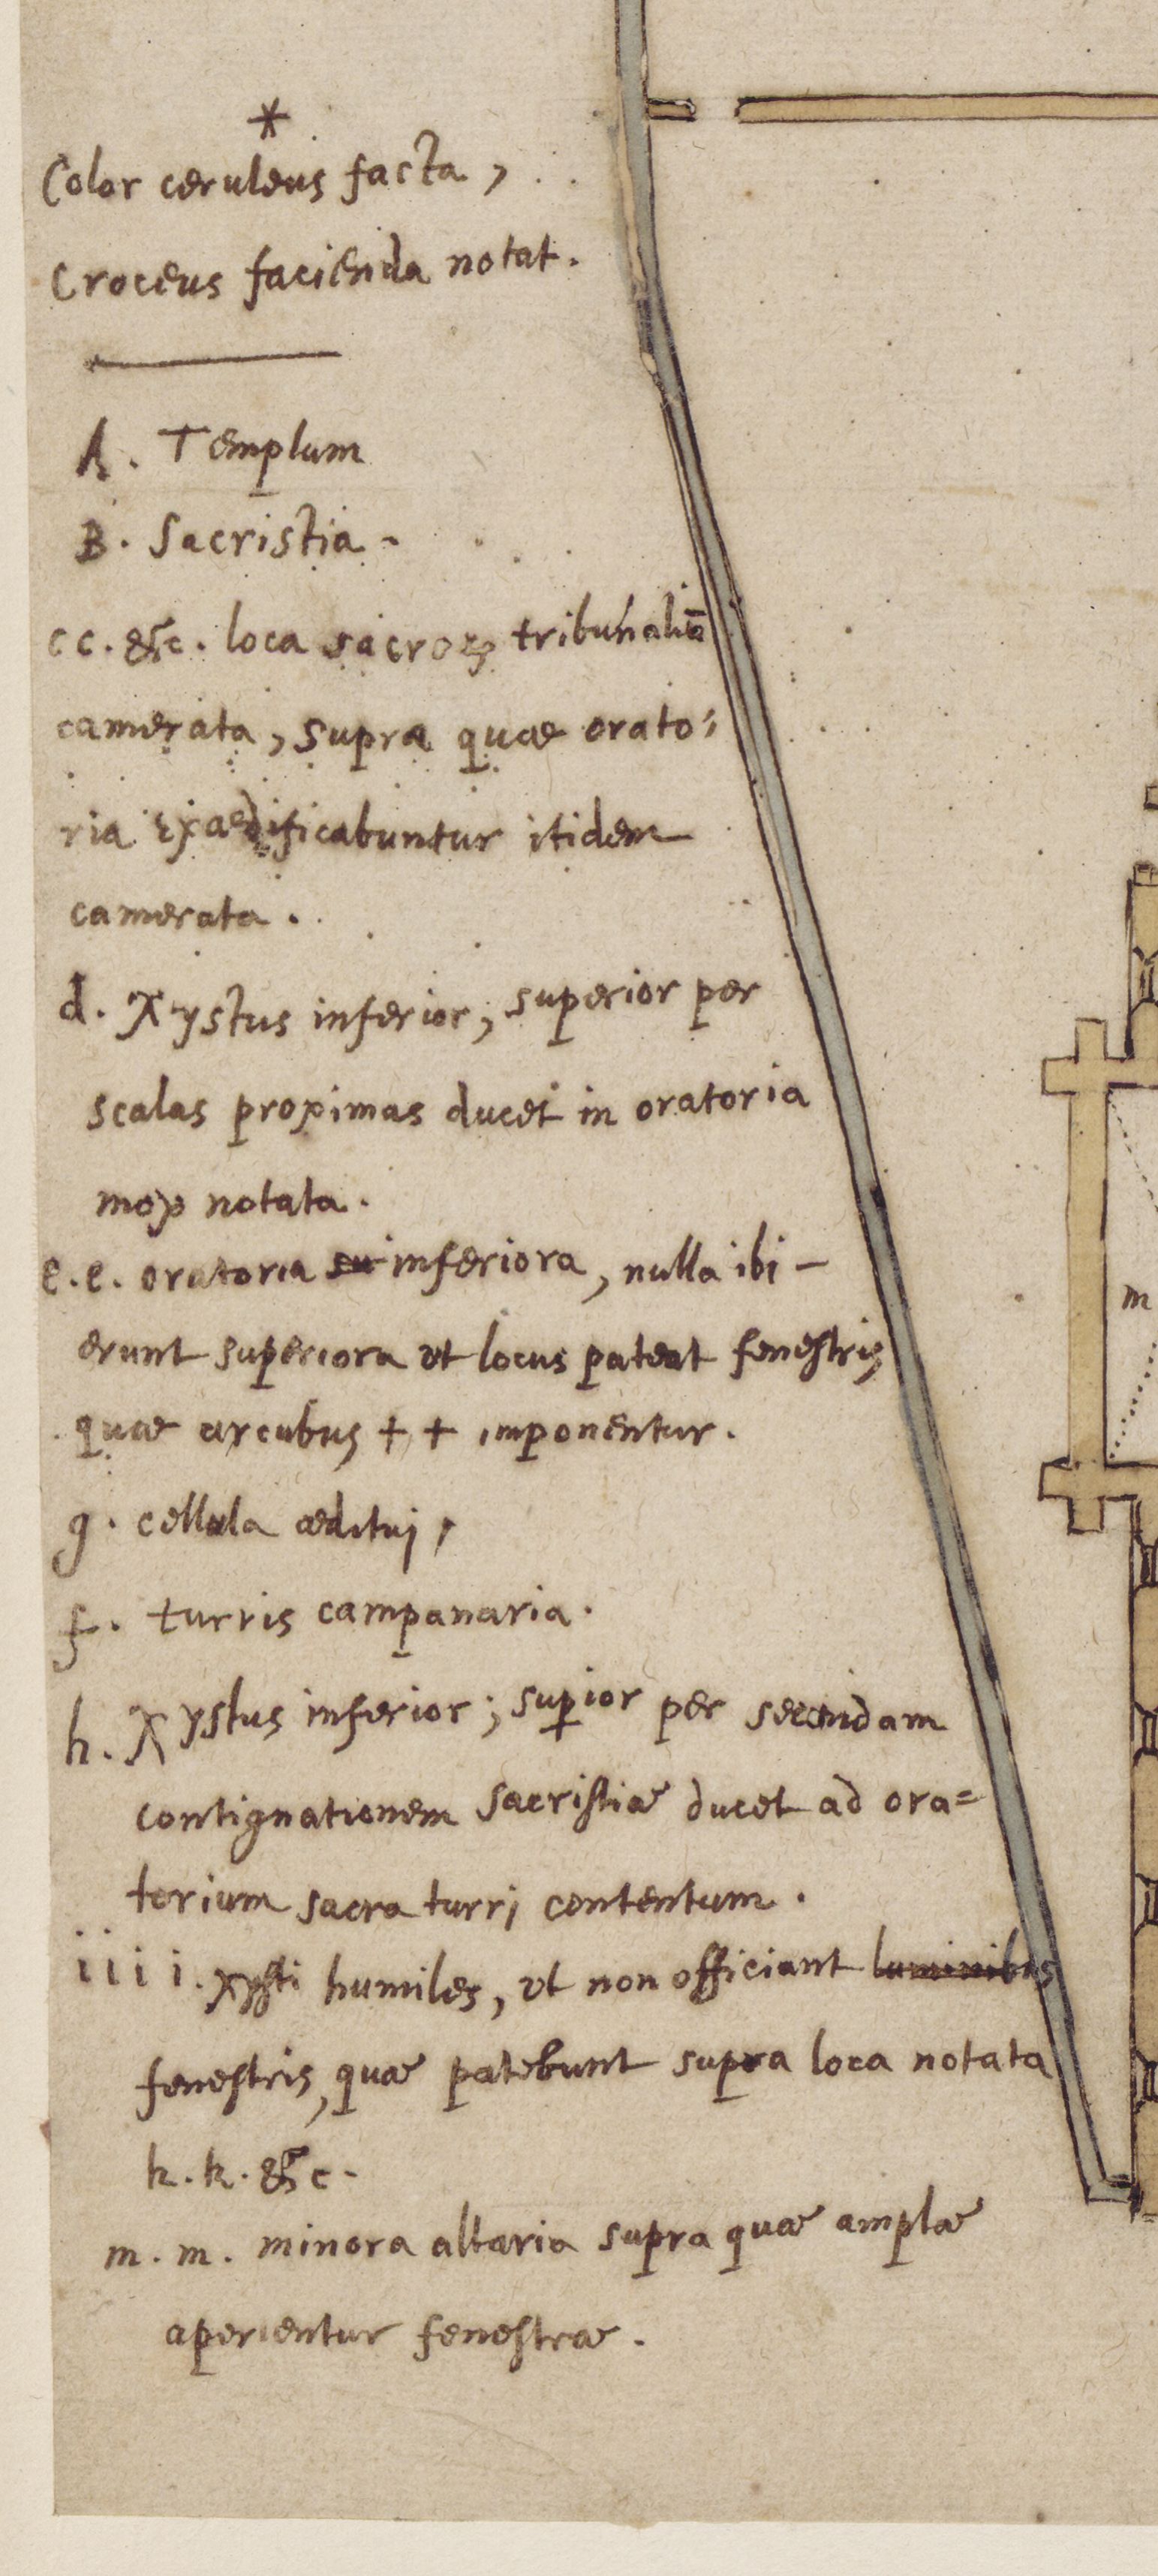 *
Color cæruleus facta,
Croceus facienda notat.
A. Templum
B. Sacristia.
cc. &c. loca sacroꝝ tribunaliū
camerata, supra quæ orato:
ria exædificabuntur itidem
camerata.
d. Xystus inferior, superior per
scalas proximas ducet in oratoria
mox notata.
e.e. oratoria su inferiora, nulla ibi
erunt superiora vt locus pateat fenestris
quæ arcubus + + imponentur.
g. cellula æditui,
f. turris campanaria.
h. Xystus inferior; supior per secundam
contignationem sacristiæ ducet ad ora=
torium sacra turri contentum.
i i i i. xysti humiles, vt non officiant luminibus
fenestris, quæ patebunt supra loca notata
k. k. &c.
m. m. minora altaria supra quæ amplæ
aperientur fenestræ.
m